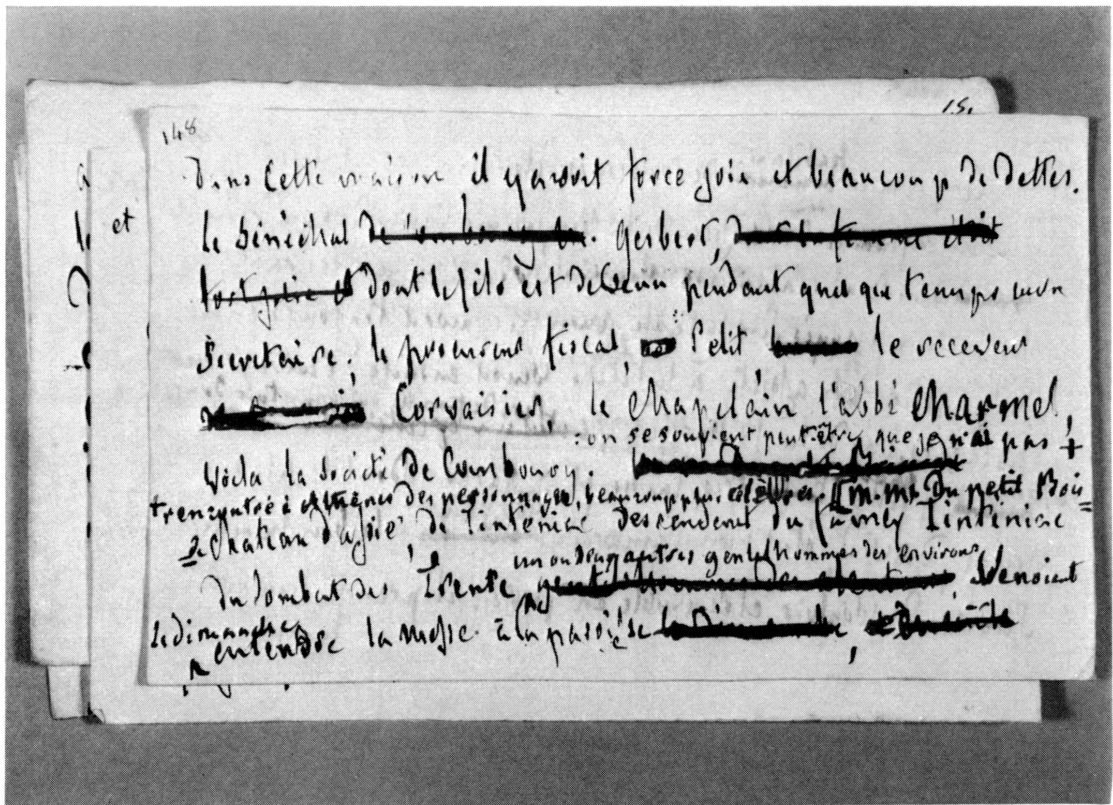 148
15.
dans cette maison il y avoit force joie et beaucoup de dettes.
et
le Sénéchal Gerbert,
dont le fils est devenu pendant quelque temps mon
Secrétaire; le procureur fiscal, Petit le receveur
Corvaisier, le chapelain l'abbé Charmel,
: on se souvient peut-être que je n'ai pas +
voila la Société de Combourg.
+ rencontré à Athènes des personnages beaucoup plus célèbres. [m.m. du petit Bois =
= de chateau d'assie, de Tinteniac descendent du fameux Tinteniac
un ou deux autres gentilshommes des environs
du Combat des Trente, venoient
le dimanche
entendre la messe à la paroisse